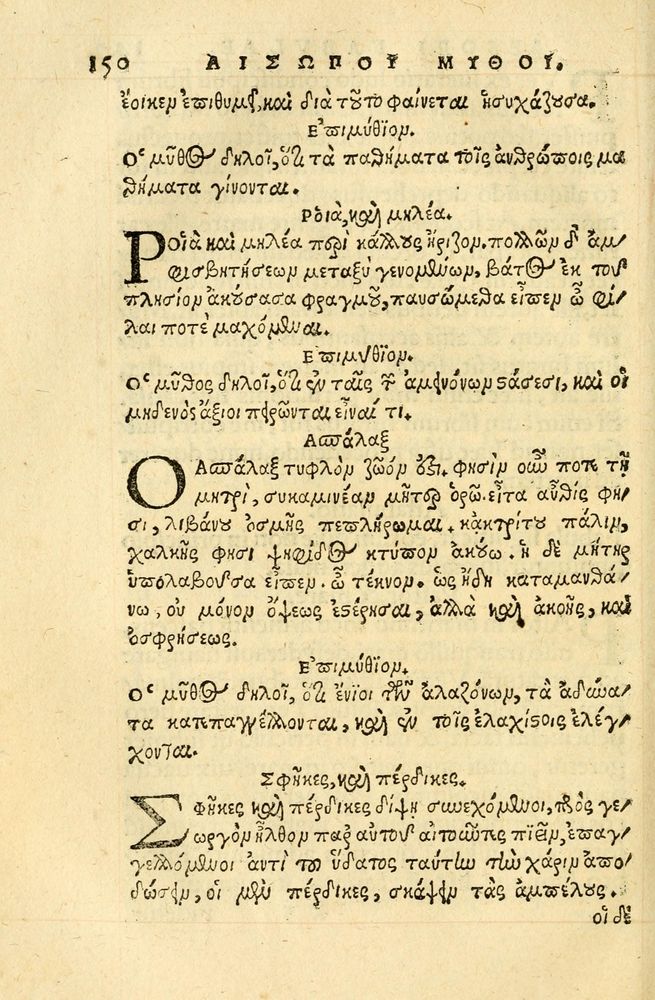 150 ΑΙΣΩΠΟΥ ΜΥΘΟΙ.
ἔοικεν ἐπιθυμεῖν, καὶ διὰ τοῦτο φαίνεται ἡσυχάζουσα.
Ἐπιμύθιον.
Ὁ μῦθος δηλοῖ, ὅτι τὰ παθήματα τοῖς ἀνθρώποις μα
θήματα γίνονται.
Ροιὰ, καὶ μηλέα.
Ροιὰ καὶ μηλέα περὶ κάλλους ἤριζον. πολλῶν δ' ἀμ-
φισβητήσεων μεταξὺ γενομένων, βάτος ἐκ τοῦ
πλησίον ἀκούσασα φραγμοῦ, παυσώμεθα εἶπεν ὦ φί-
λαι ποτὲ μαχόμεναι.
Ἐπιμύθιον.
Ὁ μῦθος δηλοῖ, ὅτι ἐν ταῖς τῶν ἀμεινόνων στάσεσι, καὶ οἱ
μηδενὸς ἄξιοι πειρῶνται εἶναί τι.
Ἀσπάλαξ
Ο Ἀσπάλαξ τυφλὸν ζῶον ἐστι. φησὶν οὖν ποτε τῇ
μητρὶ, συκαμινέαν μῆτερ ὁρῶ. εἶτα αὖθίς φη-
σι, λιβάνου ὀσμῆς πεπλήρωμαι. κἀκ τρίτου πάλιν,
χαλκῆς φησι ψηφίδος κτύπον ἀκούω. ἡ δὲ μήτηρ
ὑπολαβοῦσα εἶπεν. ὦ τέκνον. ὡς ἤδη καταμανθά-
νω, οὐ μόνον ὄψεως ἐστέρησαι, ἀλλὰ καὶ ἀκοῆς, καὶ
ὀσφρήσεως.
Ἐπιμύθιον.
Ὁ μῦθος δηλοῖ, ὅτι ἔνιοι τῶν ἀλαζόνων, τὰ ἀδύνα-
τα κατεπαγγέλλονται, καὶ ἐν τοῖς ἐλαχίστοις ἐλέγ-
χονται.
Σφῆκες, καὶ πέρδικες.
Σφῆκες καὶ πέρδικες δίψῃ συνεχόμενοι, πρὸς γε-
ωργὸν ἦλθον παρ' αὐτοῦ αἰτοῦντες πιεῖν, ἐπαγ-
γελλόμενοι ἀντὶ τοῦ ὕδατος ταύτην τὴν χάριν ἀπο-
δώσειν, οἱ μὲν πέρδικες, σκάψειν τὰς ἀμπέλους.
οἱ δὲ